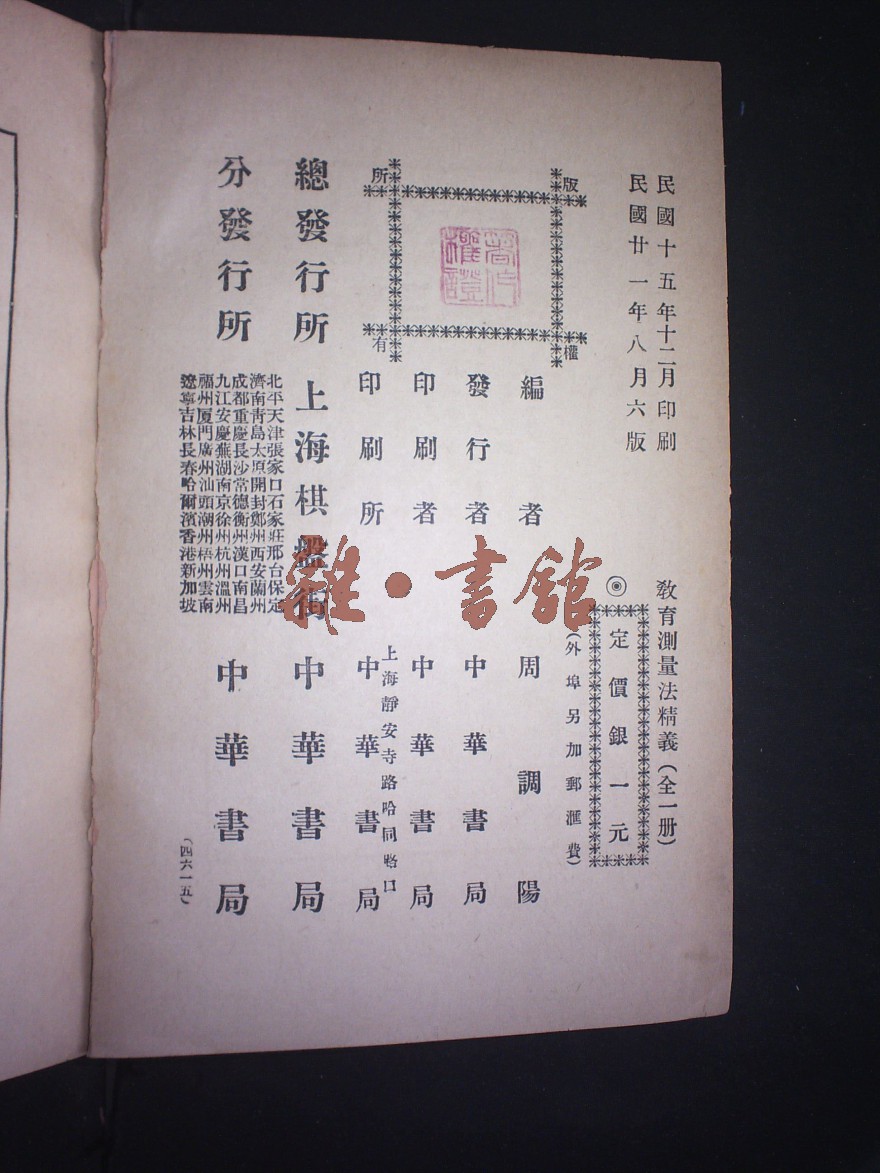 民國十五年十二月印刷
民國廿一年八月六版
教育測量法精義（全一册）
◉定價銀一元
（外埠另加郵滙費）
版權所有
著作權證
編者周調陽
發行者中華書局
印刷者中華書局
上海靜安寺路哈同路口
印刷所中華書局
總發行所上海棋盤街中華書局
分發行所
北平天津張家口石家莊邢台保定
濟南靑島太原開封鄭州西安蘭州
成都重慶長沙常德衡州漢口南昌
九江安慶蕪湖南京徐州杭州溫州
福州厦門廣州汕頭潮州梧州雲南
遼寧吉林長春哈爾濱香港新加坡
中華書局
（四六一五）
雜·書館